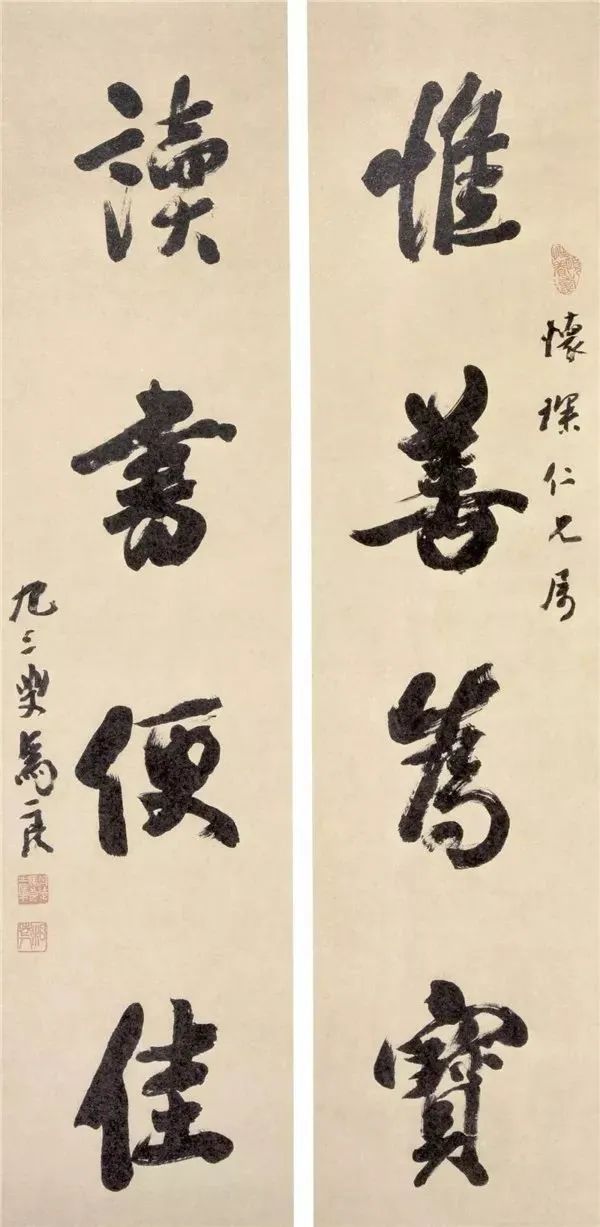 懷琛仁兄屬
惟善為寶
讀書便佳
九三叟馬良